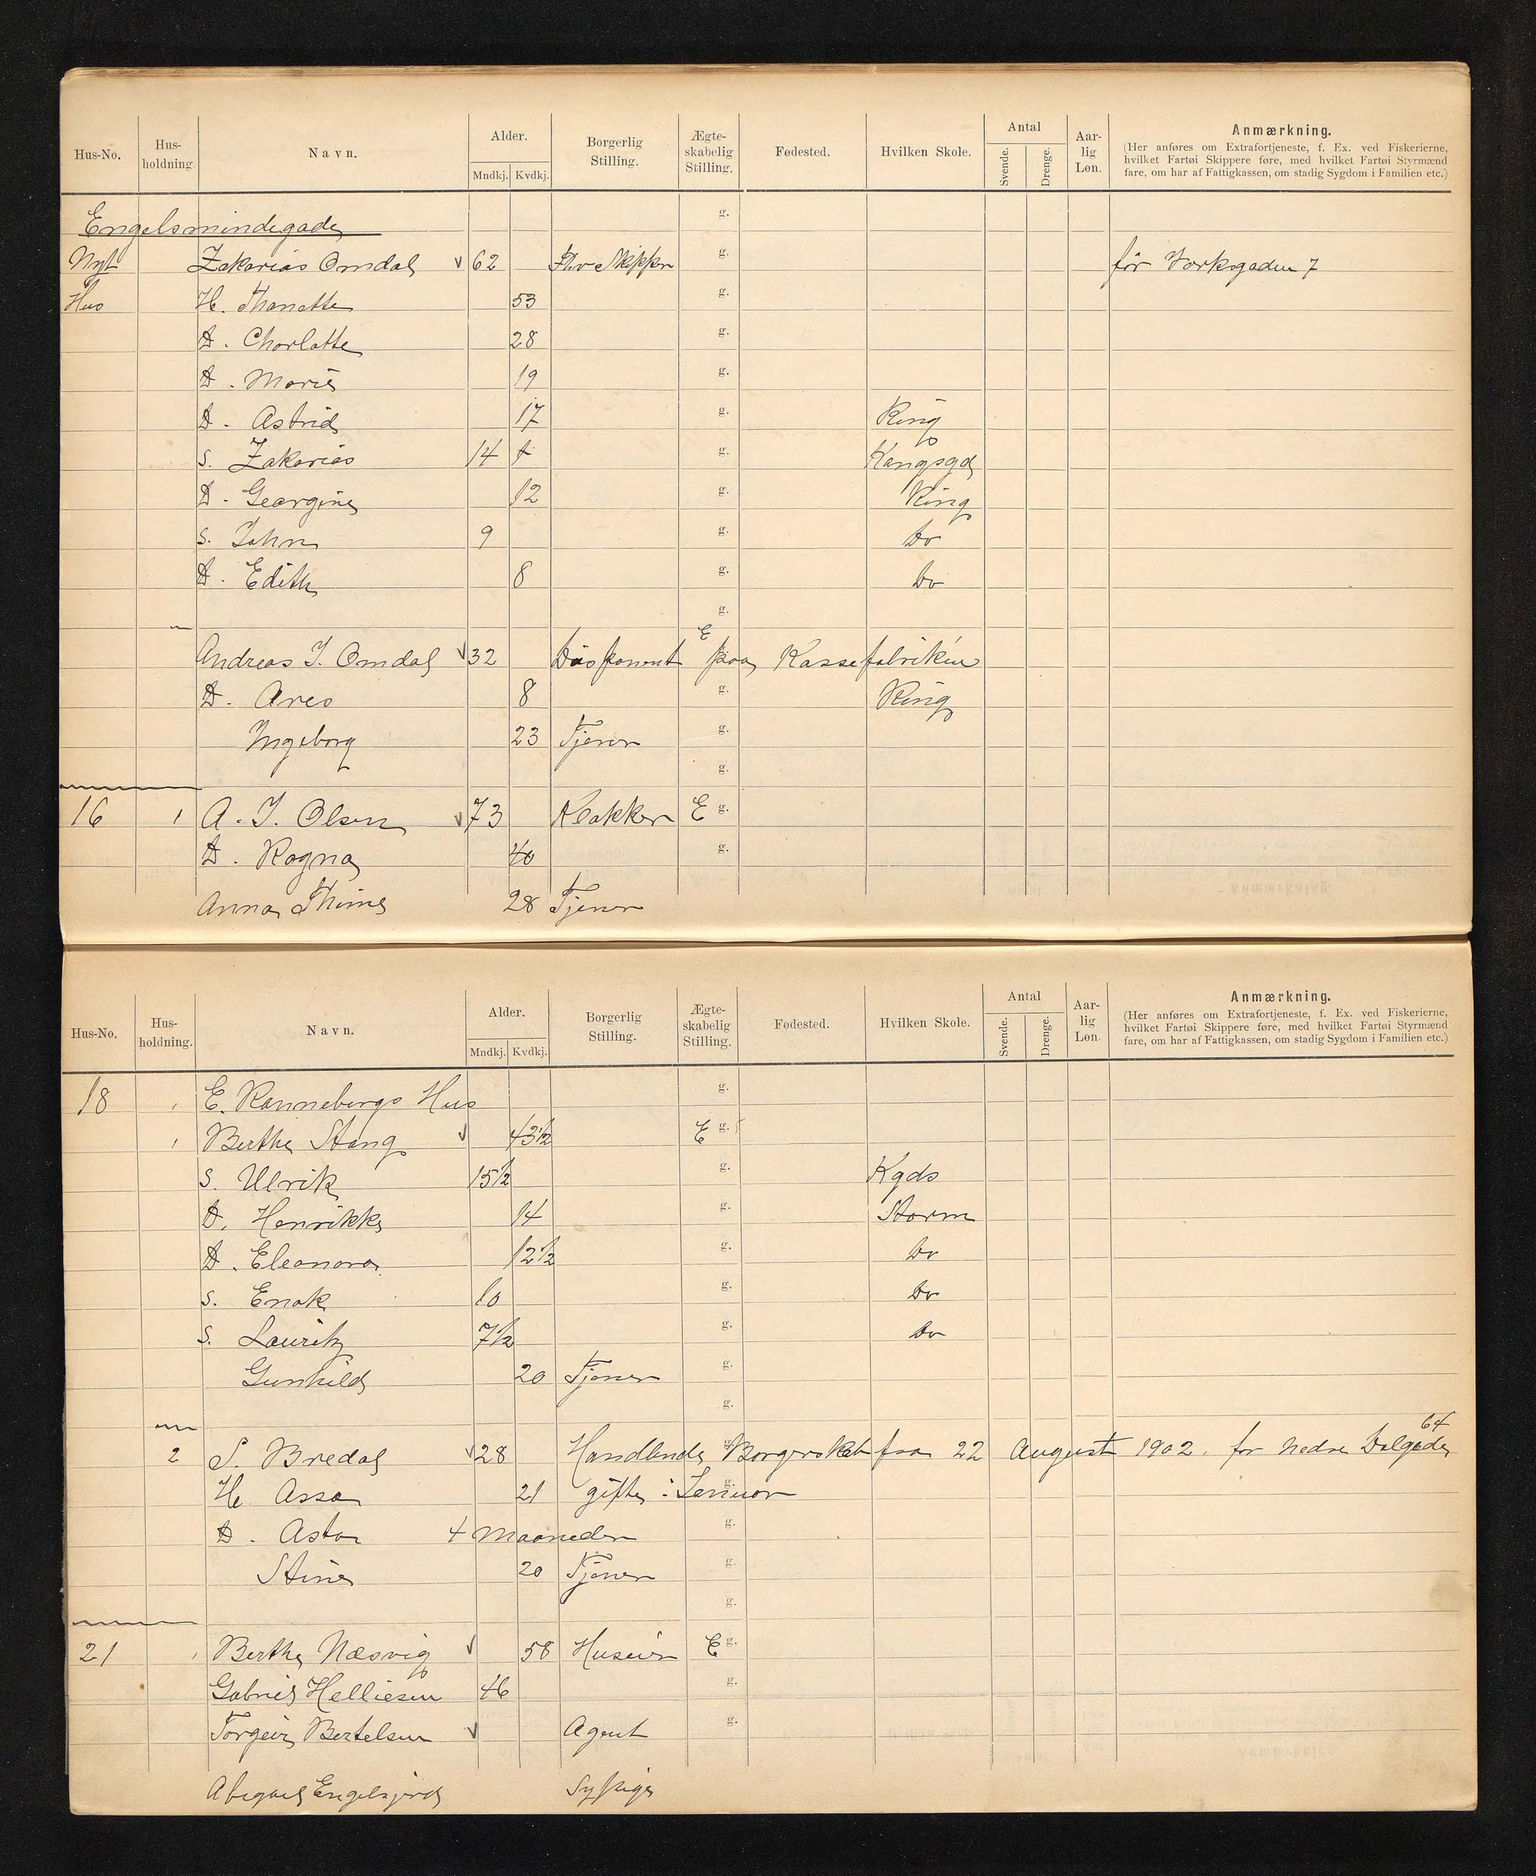 Hus-No. Hus-holdning. Navn. Alder. Mndkj. Kvdkj. Borgerlig Stilling. Ægte-skabelig Stilling. Fødested. Hvilken Skole. Antal Svende. Drenge. Aar-lig Løn. Anmærkning.
(Her anføres om Extrafortjeneste, f. Ex. ved Fiskerierne, hvilket Fartøi Skippere føre, med hvilket Fartøi Styrmænd fare, om har af Fattigkassen, om stadig Sygdom i Familien etc.)
Engelsmindegade g.
Nyt Zakarias Omdal 62 Fhv Skipper g. før 7
Hus H. Thonette 53 g.
D. Charlotte 28 g.
D. Marie 19 g.
D. Astrid 17 g. Ring
S. Zakarias 14 g. Kongsgd
D. Georgine 12 g. Ring
S. John 9 g. Do
D. Edith 8 g. Do
g.
Andreas J. Omdal 32 Disponent E paa Kassefabriken
D. Ares 8 g. Ring
Ingeborg 23 Tjener g.
g.
16 1 A. J. Olsen 73 Klokker E g.
D. Ragna 40 g.
Anna Thime 28 Tjener
Hus-No. Hus-holdning. Navn. Alder. Mndkj. Kvdkj. Borgerlig Stilling. Ægte-skabelig Stilling. Fødested. Hvilken Skole. Antal Svende. Drenge. Aar-lig Løn. Anmærkning.
(Her anføres om Extrafortjeneste, f. Ex. ved Fiskerierne, hvilket Fartøi Skippere føre, med hvilket Fartøi Styrmænd fare, om har af Fattigkassen, om stadig Sygdom i Familien etc.)
18 E. Rannebergs Hus g.
1 Berthe Stang 43½ E g.
S. Ulrik 15½ g. Kgds
D. Henrikke 14 g. Storm
D. Eleonora 12½ g. Do
S. Enok 10 g. Do
S. Lauritz 7½ g. Do
Gunhild 20 Tjener g.
g.
2 S. Bredal 28 Handlende Borgerskab fra 22 August 1902. før Nedre Dalgade 64
H. Assa 21 gifte i Januar g.
D. Asta 4 Maaneder g.
Stine 20 Tjener g.
g.
21 1 Berthe Næsvig 58 Huseier E g.
Gabriel Helliesen 46 g.
Torgeir Bertelsen Agent g.
Abigael Engelsjord Sypige